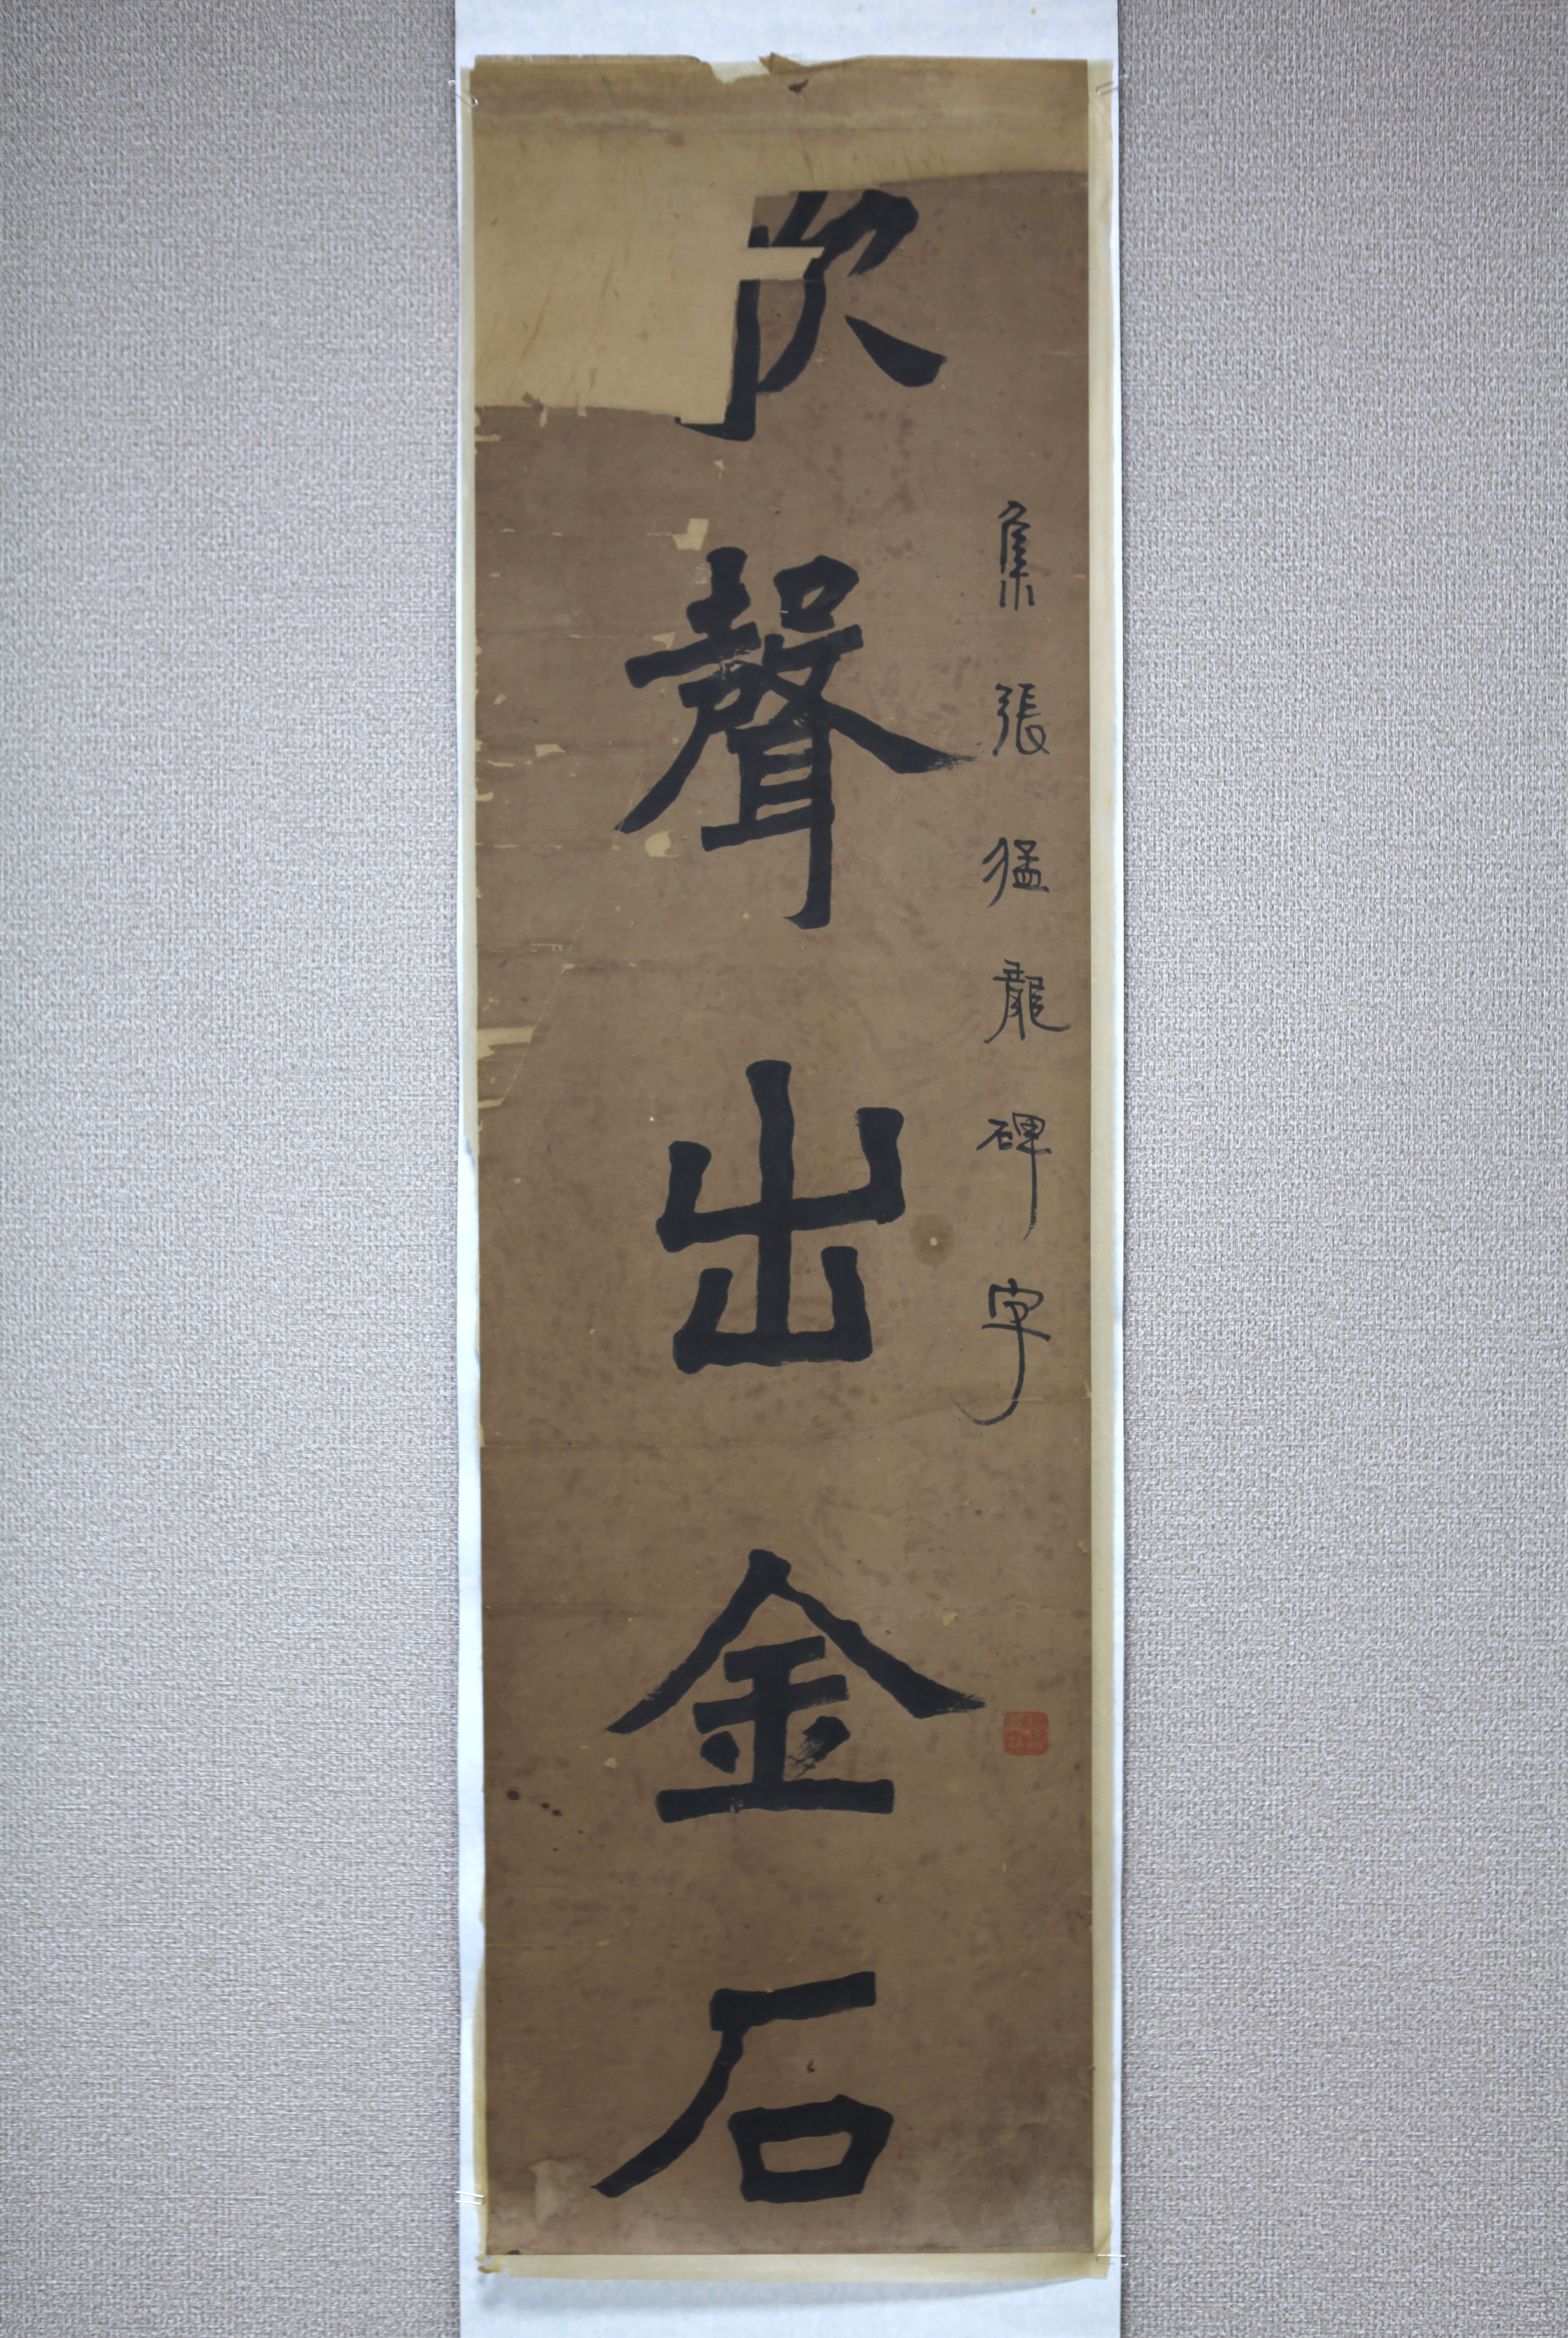 集張猛龍碑字
歌聲出金石